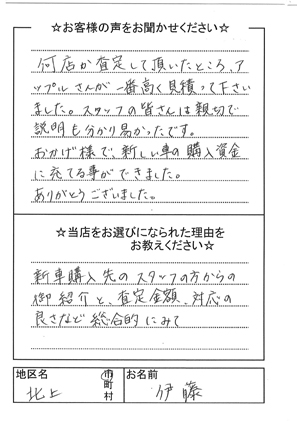 ☆お客様の声をお聞かせください☆
何店か査定して頂いたところ、ア
ップルさんが一番高く見積って下さい
ました。スタッフの皆さんは親切で
説明も分かり易かったです。
おかげ様で、新しい車の購入資金
に充てる事ができました。
ありがとうございました。
☆当店をお選びになられた理由を
お教えください☆
新車購入先のスタッフの方からの
御紹介と、査定金額、対応の
良さなど総合的にみて
地区名 市町村 お名前
北上 伊藤